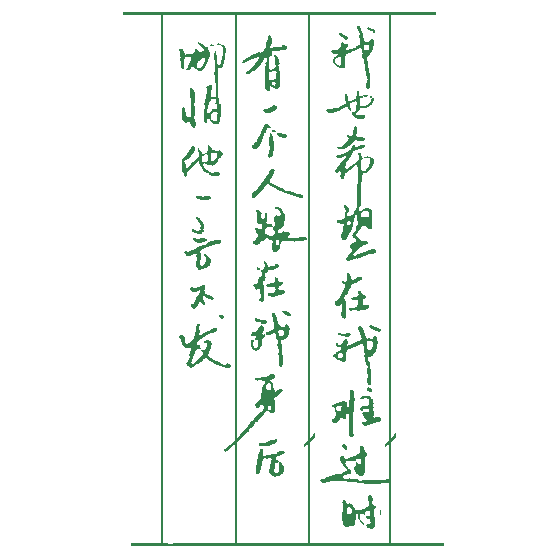 我也希望在我难过时
有一个人跟在我身后
哪怕他一言不发